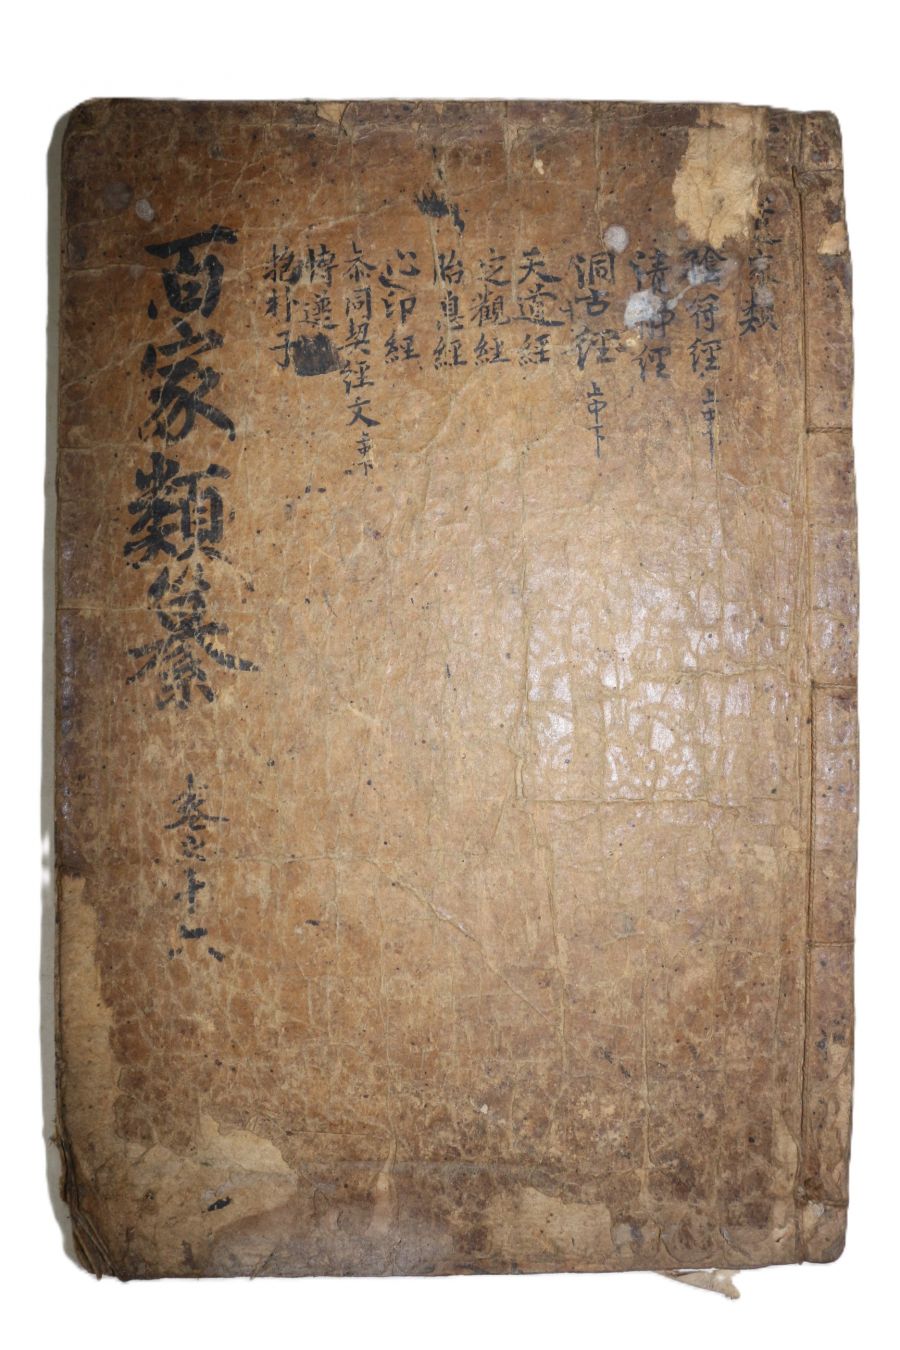 家類
陰符經 上中下
清神經
洞古經 上中下
天道經
定觀經
胎息經
心印經
叅同契經文
愽選
抱朴子
百家類纂 卷之十六